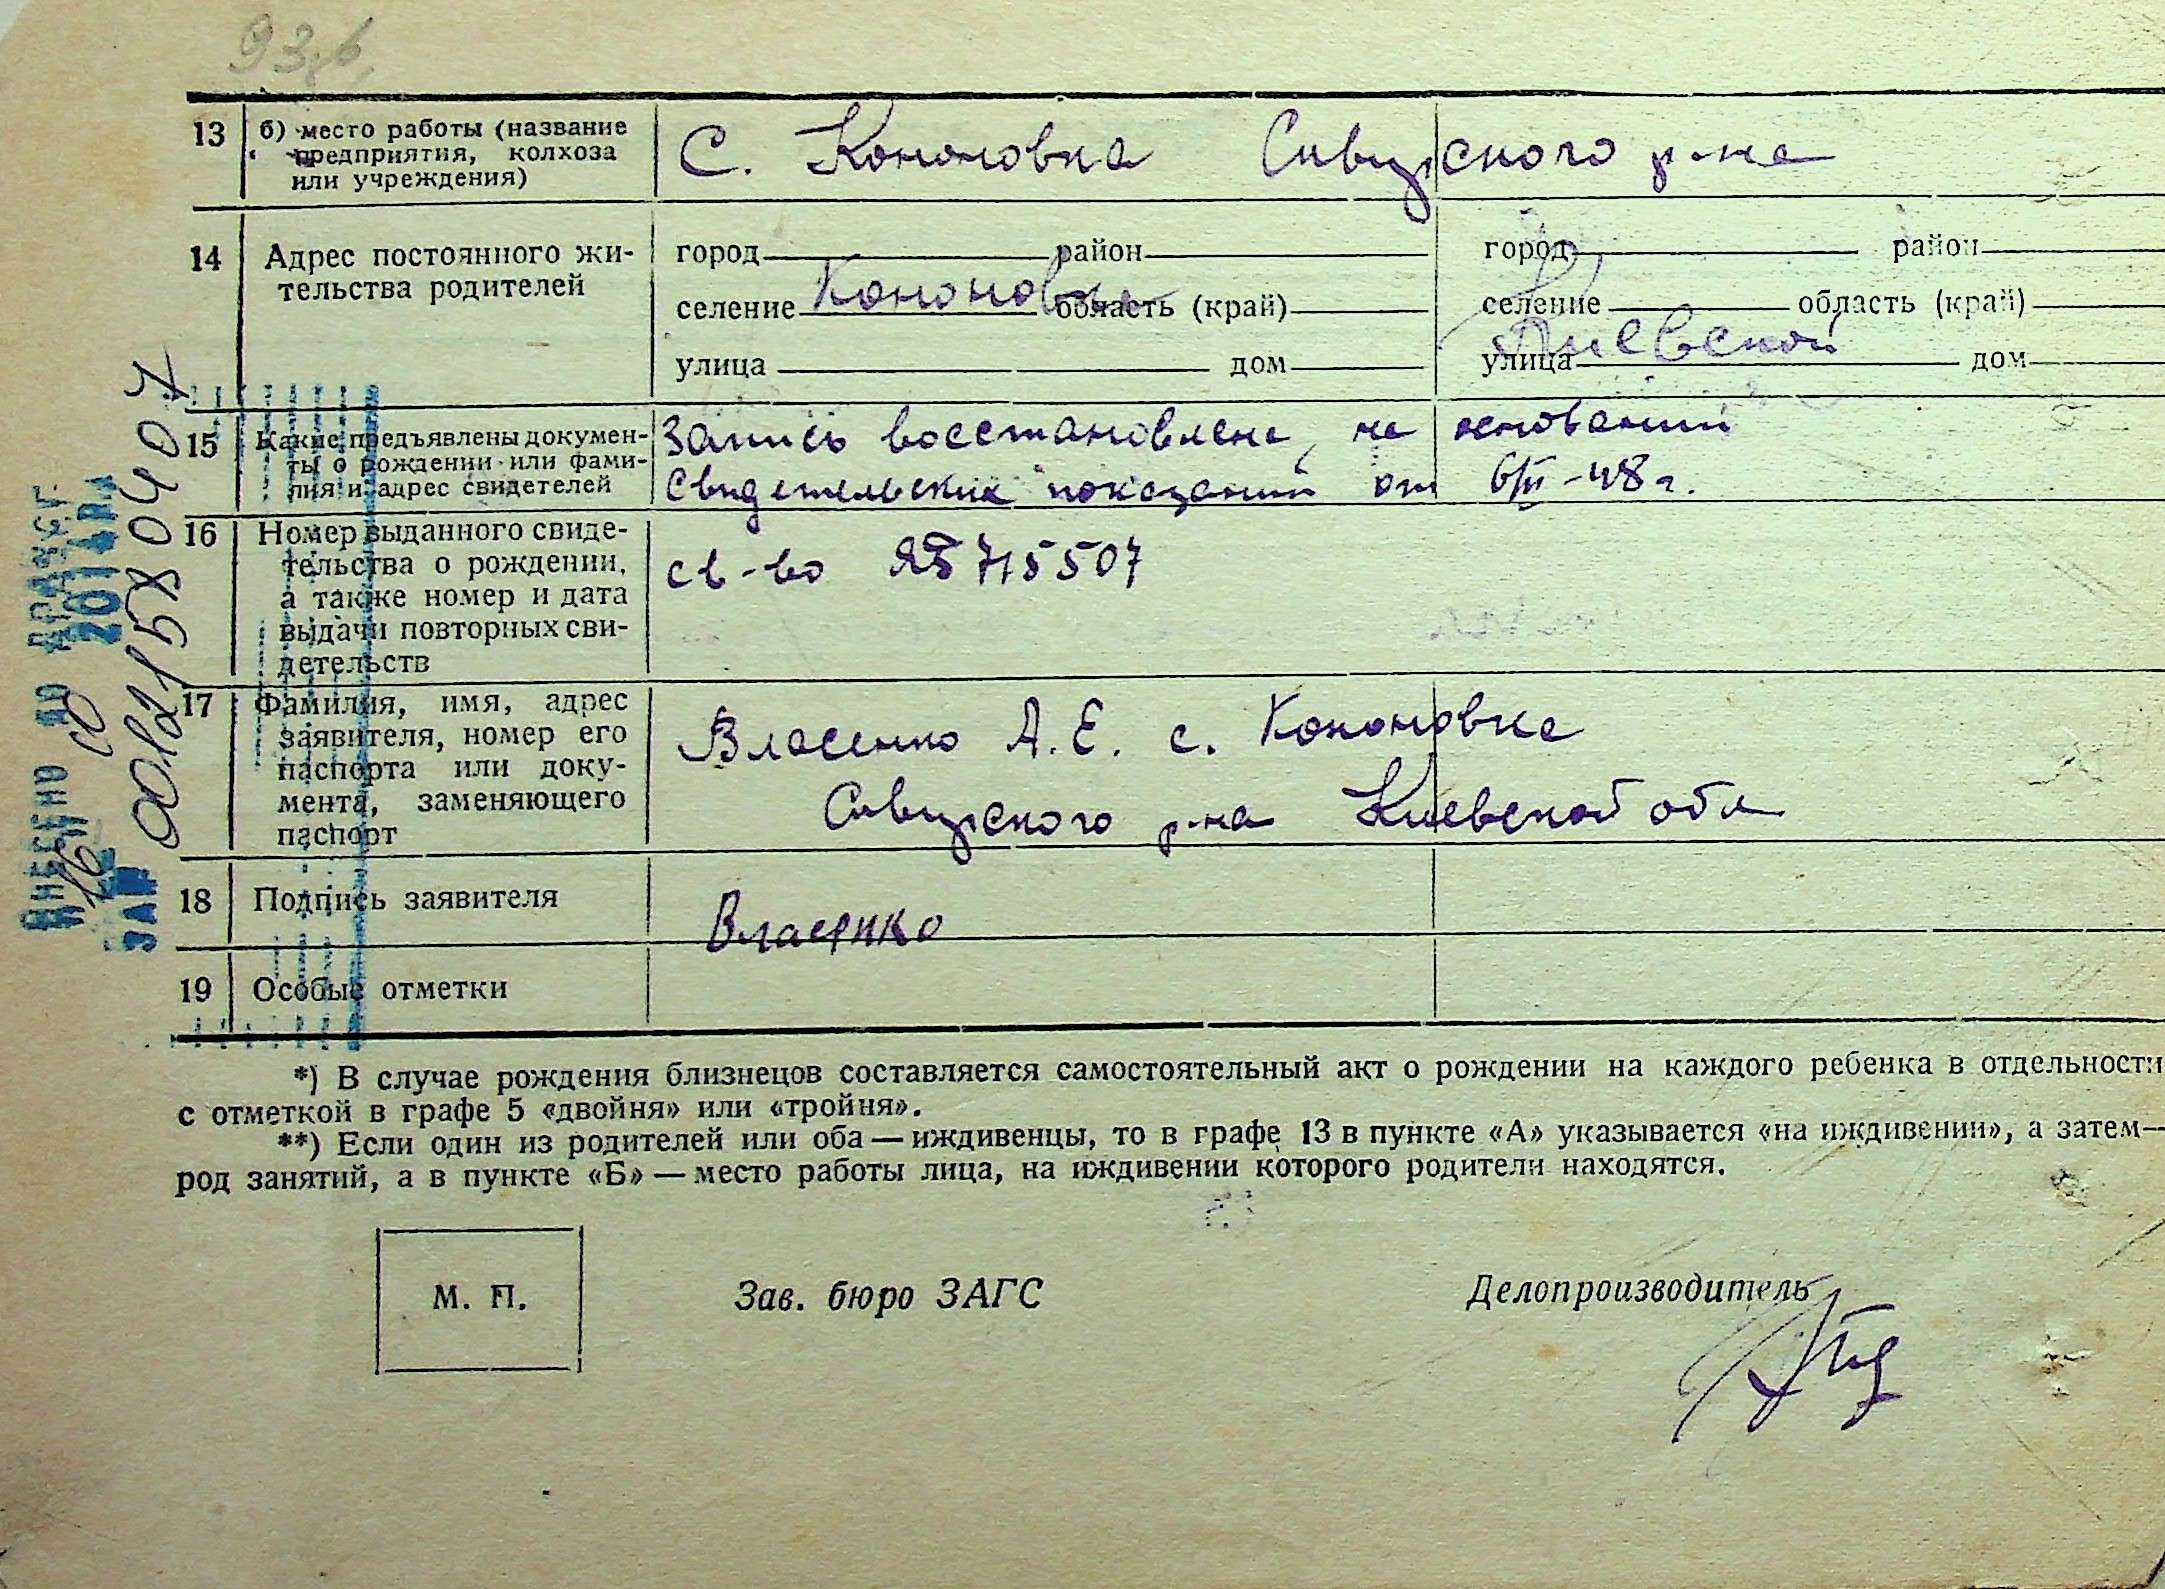 93
13 б) место работы (название С. Кононовка Сквирского р-на
предприятия, колхоза
или учреждения)
14 Адрес постоянного жи- город район город район
тельства родителей селение Кононовка область (край) селение область (край)
Киевской
улица дом улица дом
15 Какие предъявлены докумен- Запись восстановлена на основании
ты о рождении или фами- свидетельских показаний от 6/III-48 г.
лия и адрес свидетелей
16 Номер выданного свиде-
тельства о рождении, св-во ЯБ 715507
а также номер и дата
выдачи повторных сви-
детельств
17 Фамилия, имя, адрес Власенко А. Е. с. Кононовка
заявителя, номер его
паспорта или доку- р-на Киевской обл
мента, заменяющего
паспорт
18 Подпись заявителя Власенко
19 Особые отметки
*) В случае рождения близнецов составляется самостоятельный акт о рождении на каждого ребенка в отдельности
с отметкой в графе 5 «двойня» или «тройня».
**) Если один из родителей или оба — иждивенцы, то в графе 13 в пункте «А» указывается «на иждивении», а затем—
род занятий, а в пункте «Б» — место работы лица, на иждивении которого родители находятся.
М. П. Зав. бюро ЗАГС Делопроизводитель
ВНЕСЕНО ДО ДРАЦСГ
16
00121580407